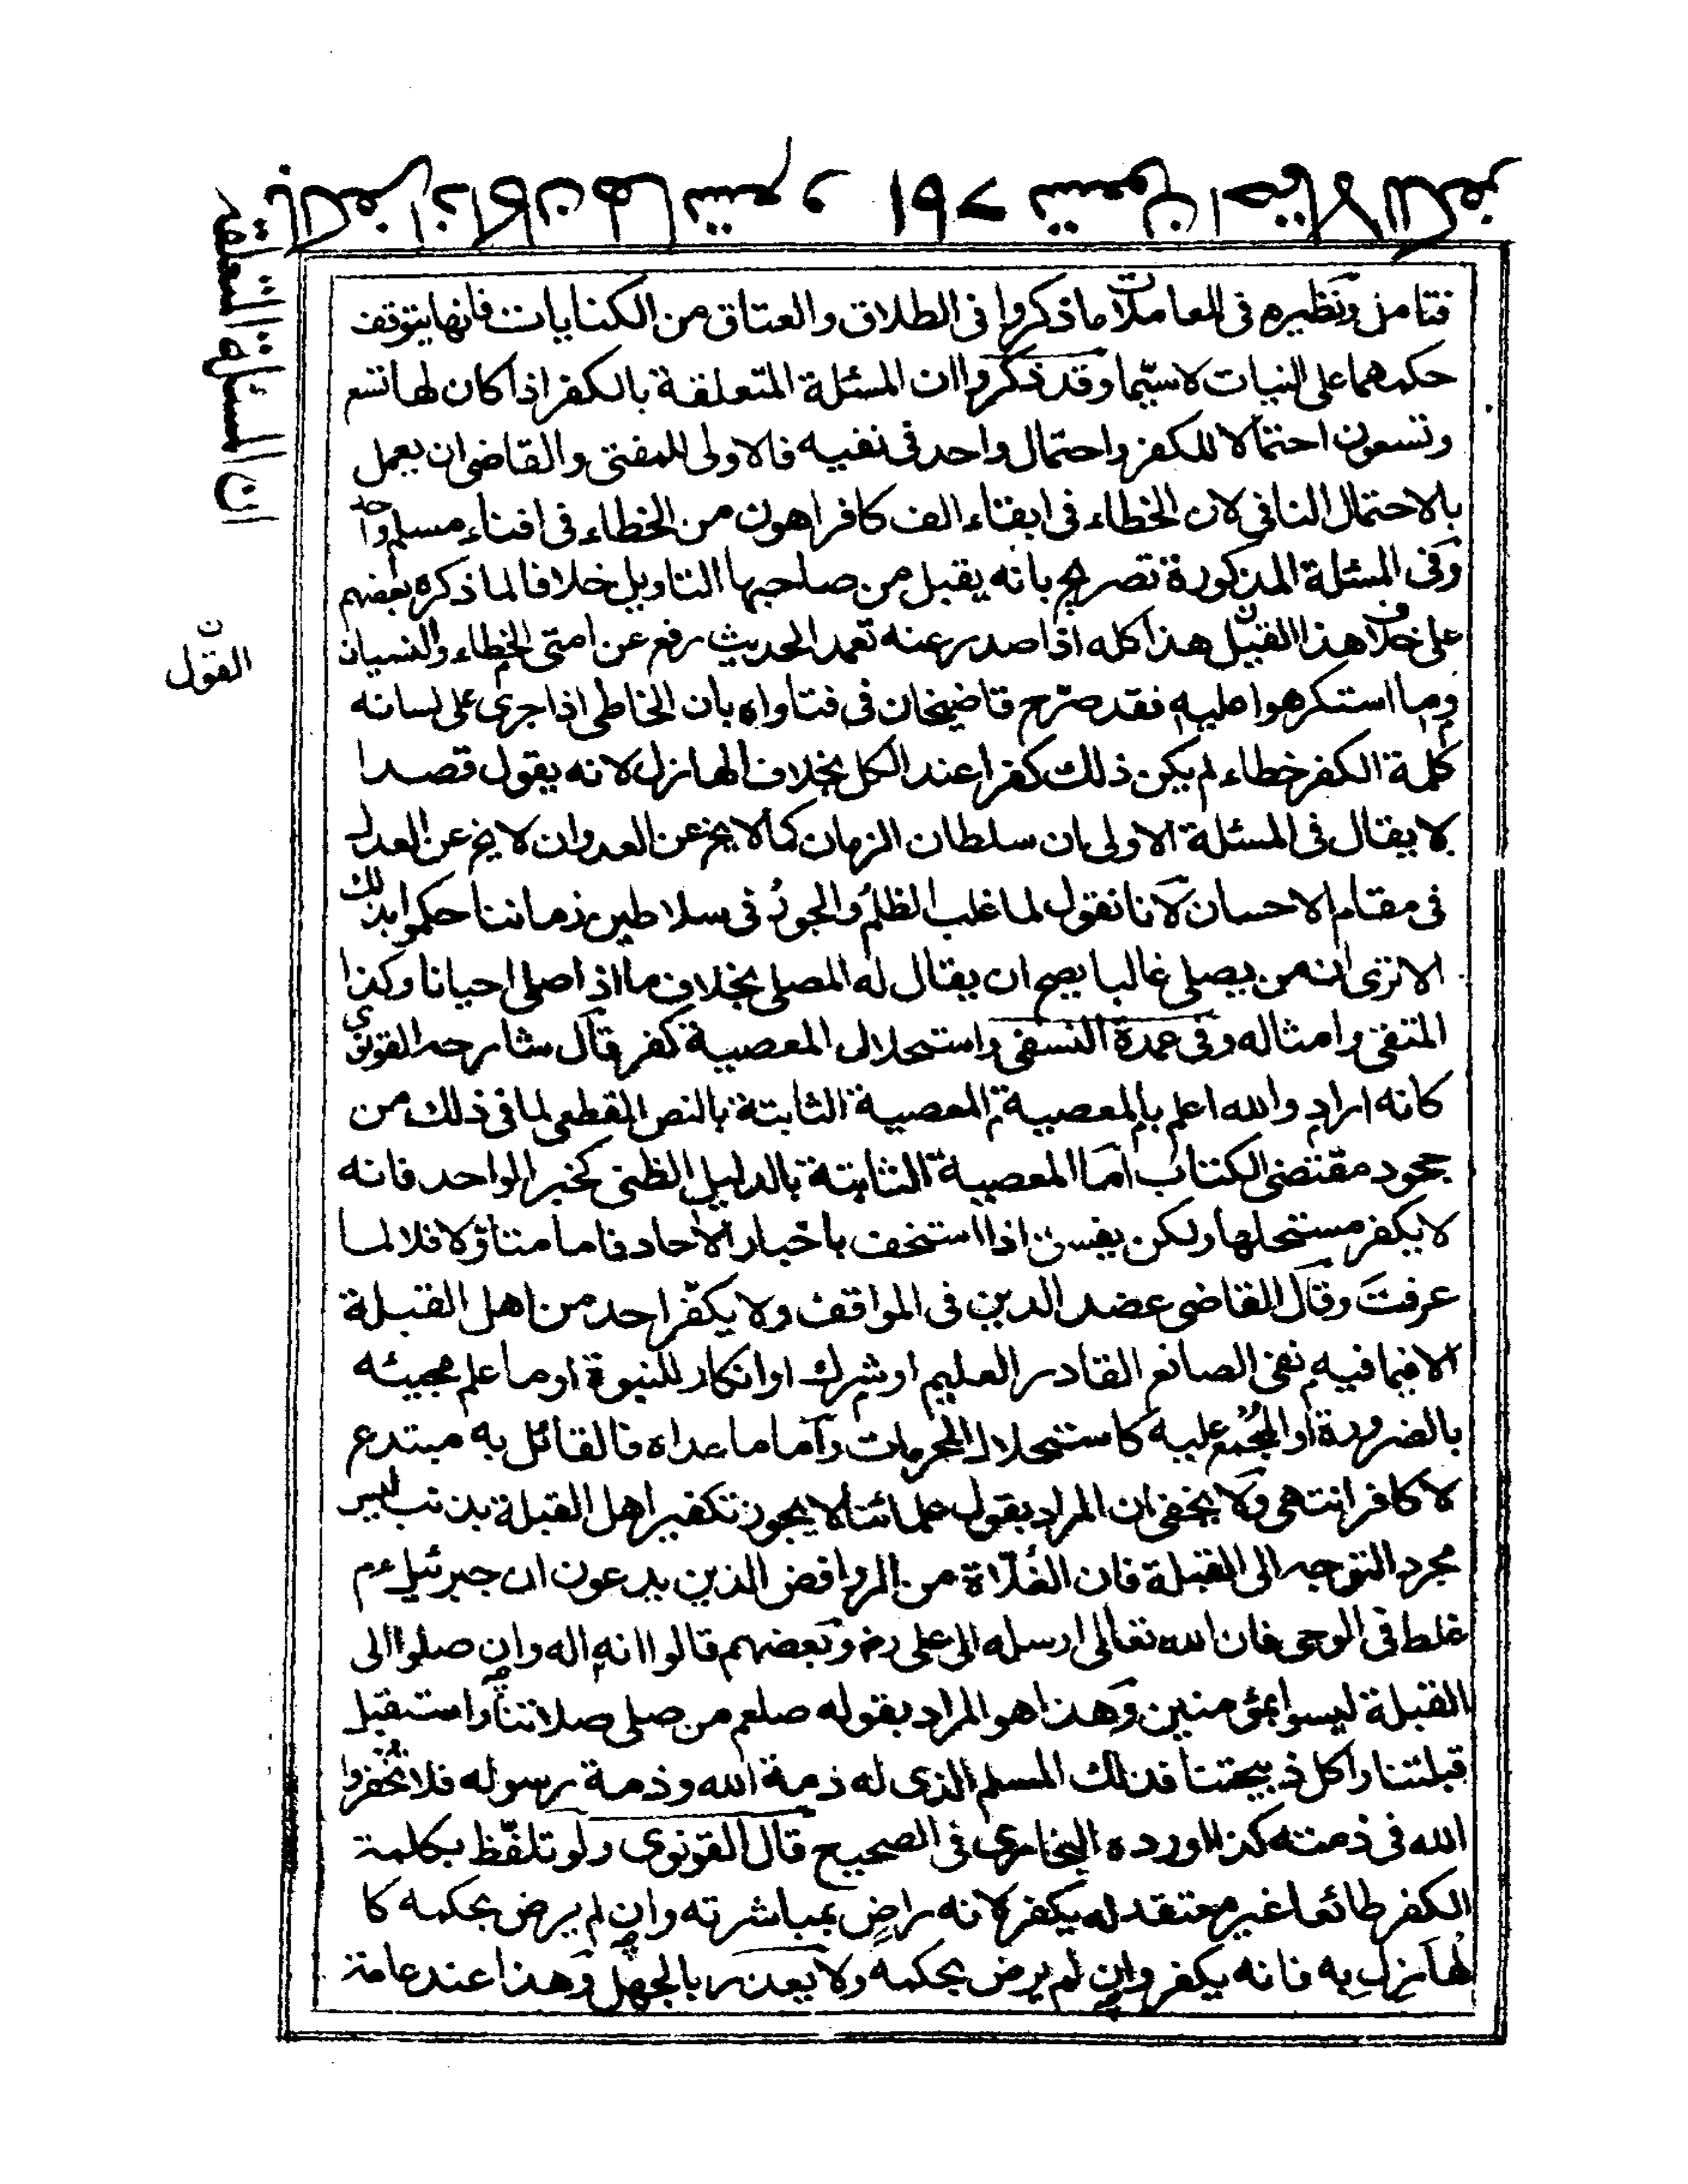 ان المسئلة المتعلقة
بالكفر اذا كان لها تسع و ١٦٧ تسعون احتمالا للكفر
فتامل ونظيره فى المعاملات ما ذكروا فى الطلاق والعتاق من الكنايات فانها يتوقف
حكمهما على النيات لاسيّما وقد ذكروا ان المسئلة المتعلقة بالكفر اذا كان لها تسع
وتسعون احتمالا للكفر واحتمال واحد فى نفيه فالاولى للمفتى والقاضى ان يعمل
بالاحتمال النافى لان الخطاء فى ابقاء الف كافر اهون من الخطاء فى افناء مسلم واحد
وفى المسئلة المذكورة تصريح بانه يقبل من صاحبها التاويل خلافا لما ذكره بعضهم
على خلاف هذا القيل هذا كله اذا صدر عنه تعمد الحديث رفع عن امتى الخطاء والنسيان
القول
وما استكرهوا عليه فقد صرّح قاضيخان فى فتاواه بان الخاطى اذا جرى على لسانه
كلمة الكفر خطاء لم يكن ذلك كفرا عند الكل بخلاف الهازل لانه يقول قصدا
لا يقال فى المسئلة الاولى ان سلطان الزمان كما لا يخ عن العدوان لا يخ عن العدل
فى مقام الاحسان لانا نقول لما غلب الظلم والجور فى سلاطين زماننا حكموا بذلك
الا ترى انه من يصلى غالبا يصح ان يقال له المصلى بخلاف ما اذا صلى احيانا وكذا
المتقى وامثاله وفى عمدة النسفى واستحلال المعصية كفر قال شارحه القونوى
كانه اراد والله اعلم بالمعصية المعصية الثابتة بالنص القطعى لما فى ذلك من
جحود مقتضى الكتاب اما المعصية الثابتة بالدليل الظنى كخبر الواحد فانه
لا يكفر مستحلها ولكن يفسق اذا استخف باخبار الآحاد فاما متاوّلا فلا لما
عرفت وقال القاضى عضد الدين فى المواقف ولا يكفّر احد من اهل القبلة
الا فيما فيه نفى الصانع القادر العليم او شرك او انكار للنبوة او ما علم مجيئه
بالضرورة او المجمع عليه كاستحلال المحرمات واما ما عداه فالقائل به مبتدع
لا كافر انتهى ولا يخفى ان المراد بقول علمائنا لا يجوز تكفير اهل القبلة بذنب ليس
مجرد التوجه الى القبلة فان الغلاة من الروافض الذين يدعون ان جبرئيل عم
غلط فى الوحى فان الله تعالى ارسله الى على رض وبعضهم قالوا انه اله وان صلوا الى
القبلة ليسوا بمؤمنين وهذا هو المراد بقوله صلعم من صلى صلاتنا واستقبل
قبلتنا واكل ذبيحتنا فذلك المسلم الذى له ذمة الله وذمة رسوله فلا تخفروا
الله فى ذمته كذا اورده البخارى فى الصحيح قال القونوى ولو تلفّظ بكلمة
الكفر طائعا غير معتقد له يكفر لانه راضٍ بمباشرته وان لم يرض بحكمه كا
لهازل به فانه يكفر وان لم يرض بحكمه ولا يعذر بالجهل وهذا عند عامة